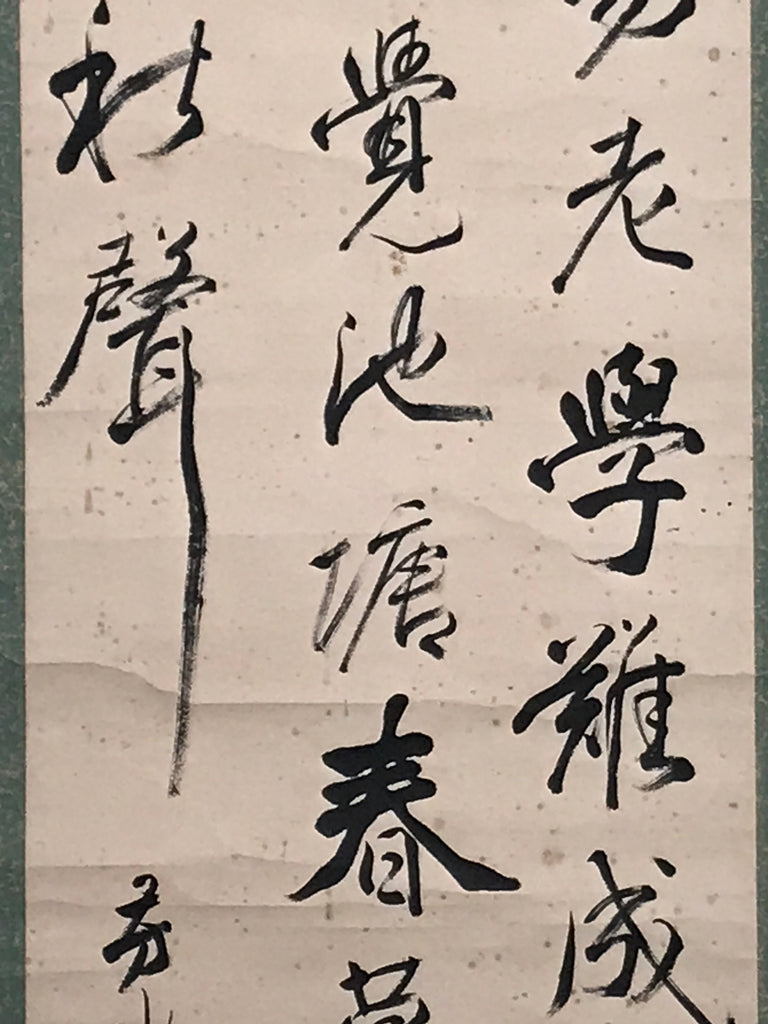 老學難成
覺池塘春
秋聲